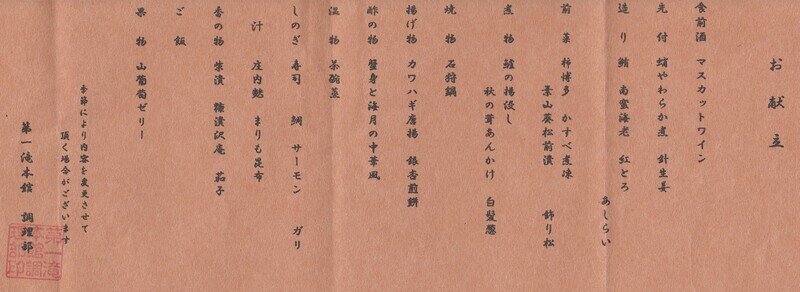 お献立
食前酒 マスカットワイン
先付 蛸やわらか煮 針生姜
造り 鮪 南蛮海老 紅とろ
あしらい
前菜 柿博多 かすべ煮凍
葉山葵松前漬 飾り松
煮物 鰊の揚浸し
秋の茸あんかけ 白髪葱
焼物 石狩鍋
揚げ物 カワハギ唐揚 銀杏煎餅
酢の物 蟹身と海月の中華風
温物 茶碗蒸
しのぎ 寿司 鯛 サーモン ガリ
汁 庄内麩 まりも昆布
香の物 柴漬 糠漬沢庵 茄子
ご飯
果物 山葡萄ゼリー
季節により内容を変更させて
頂く場合がございます
第一滝本館 調理部